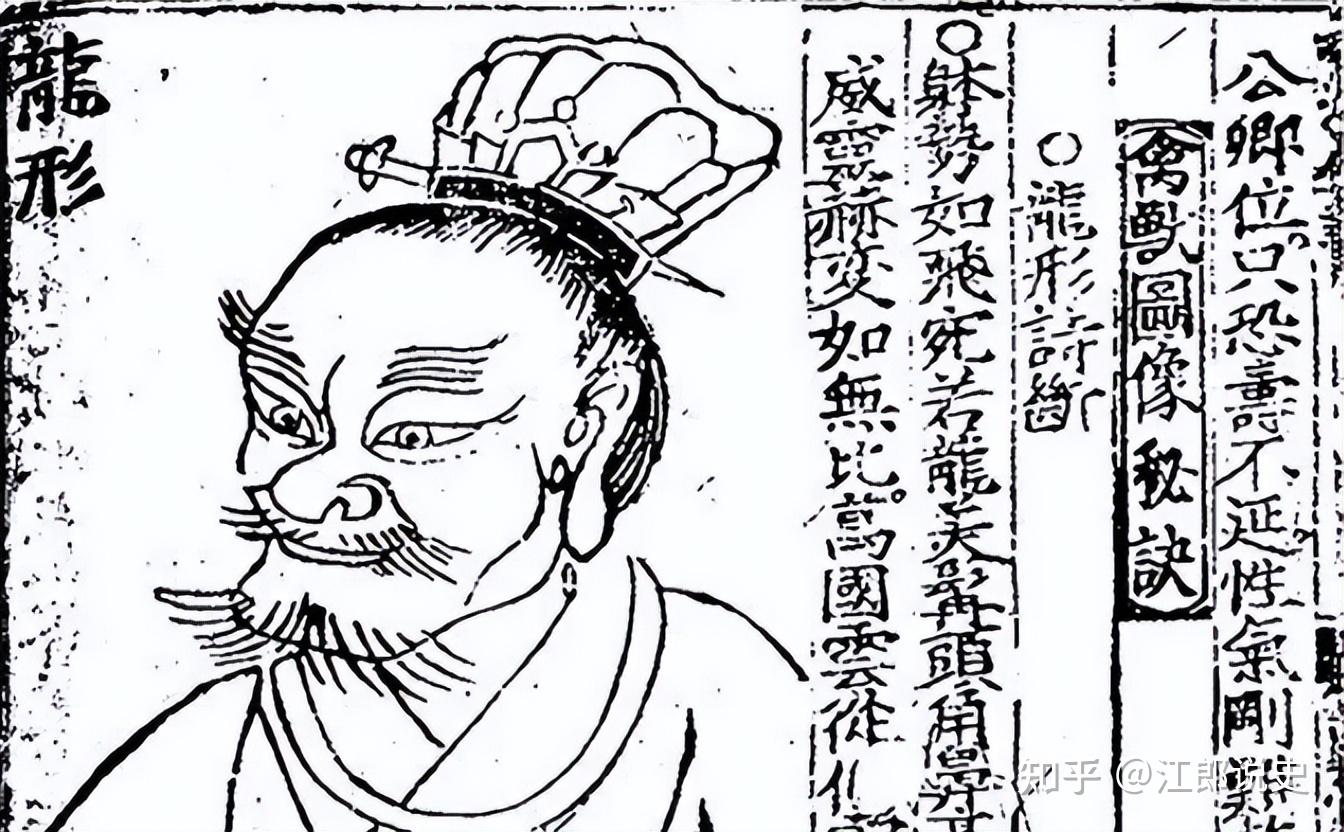 公卿位只恐壽不延性氣剛
禽獸圖像秘訣
○龍形詩斷
○躰勢如飛宛若龍美髯頭角
威靈赫奕如無比萬國雲從
龍形
知乎 @江郎说史